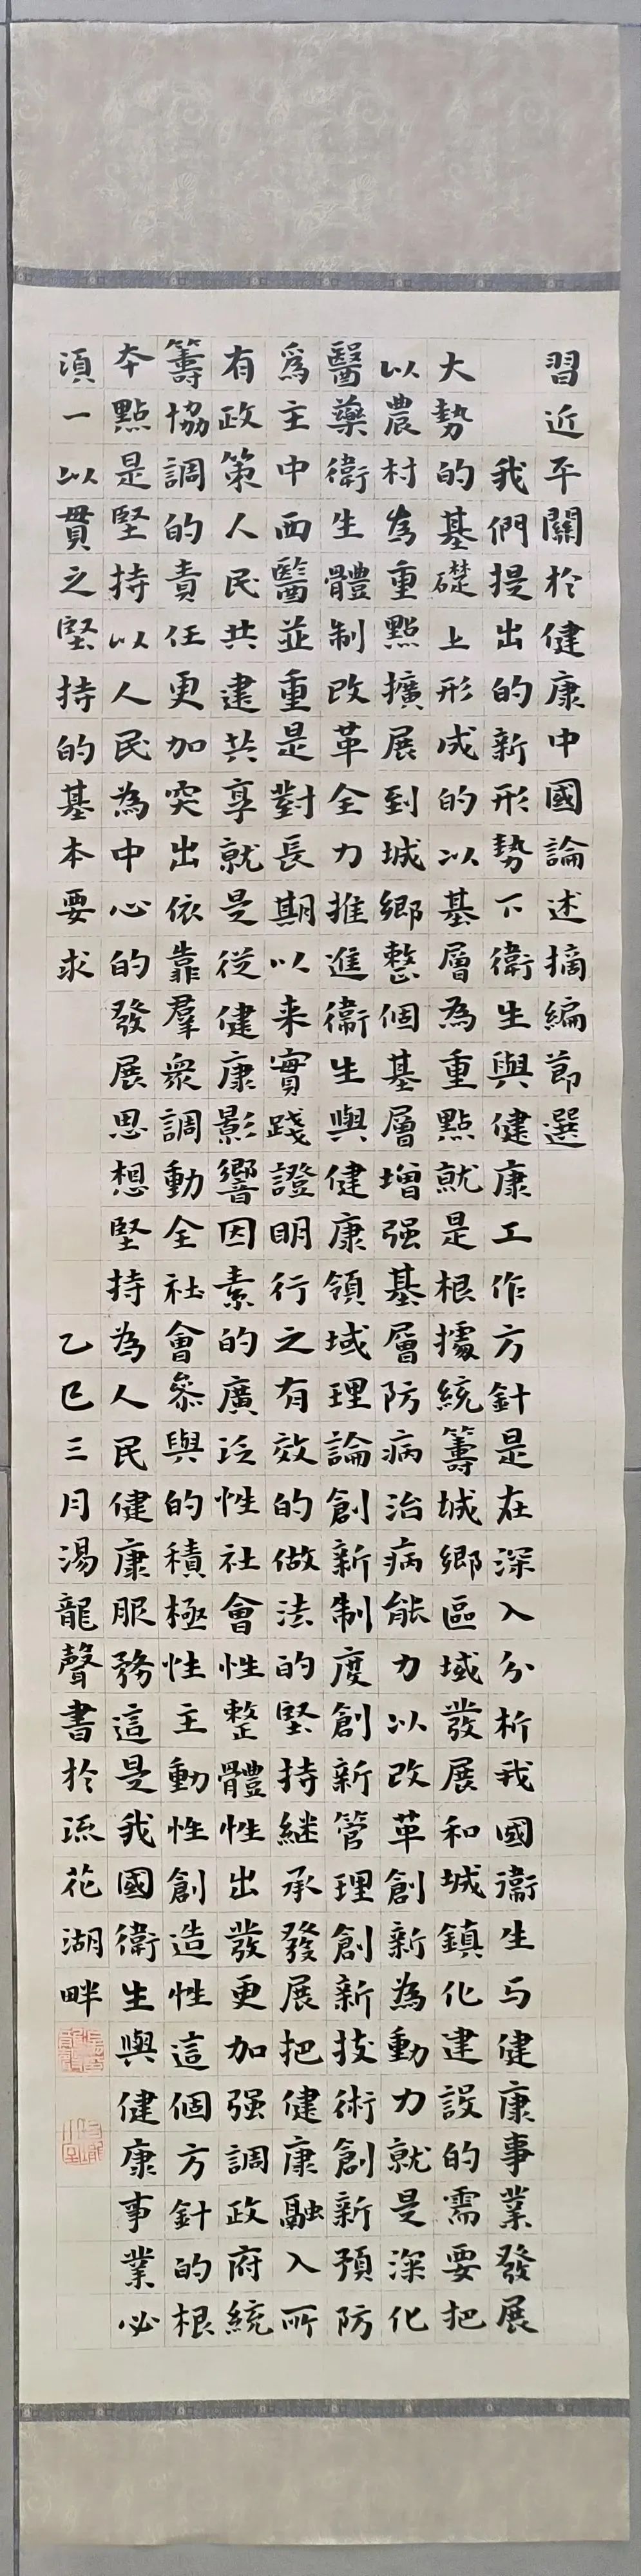 習近平關於健康中國論述摘編節選
我們提出的新形勢下衛生與健康工作方針是在深入分析我國衛生与健康事業發展
大勢的基礎上形成的以基層為重點就是根據統籌城鄉區域發展和城鎮化建設的需要把
以農村為重點擴展到城鄉整個基層增强基層防病治病能力以改革創新為動力就是深化
醫藥衛生體制改革全力推進衛生與健康領域理論創新制度創新管理創新技術創新預防
爲主中西醫並重是對長期以来實踐證明行之有效的做法的堅持継承發展把健康融入所
有政策人民共建共享就是從健康影響因素的廣泛性社會性整體性出發更加强調政府統
籌協調的責任更加突出依靠羣衆調動全社會叅與的積極性主動性創造性這個方針的根
本點是堅持以人民為中心的發展思想堅持為人民健康服務這是我國衛生與健康事業必
須一以貫之堅持的基本要求
乙巳三月湯龍聲書於流花湖畔